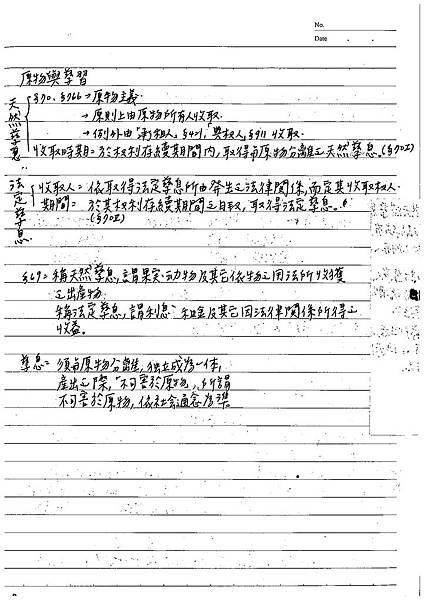 No.
Date
原物與孳習
天然孳息
§70、§766→原物主義.
→原則上由原物所有人收取.
→例外由 承租人, §421, 典權人, §911 收取.
收取時期=於权利存續期間内, 取得與原物分離之天然孳息.(§70I)
法定孳息
收取人= 依取得法定孳息所由發生之法律關係, 而定其收取权人.
期間= 於其权利存續期間之日数, 取得法定孳息.
(§70II)
§69= 稱天然孳息, 謂果实、动物及其它依物之用法所收獲
之出產物
稱法定孳息, 謂利息、租金及其它因法律關係所得之
收益。
孳息= 須與原物分離, 独立成為一体,
產出之際, "不可害於原物", 所謂
不可害於原物, 依社会通念為準.